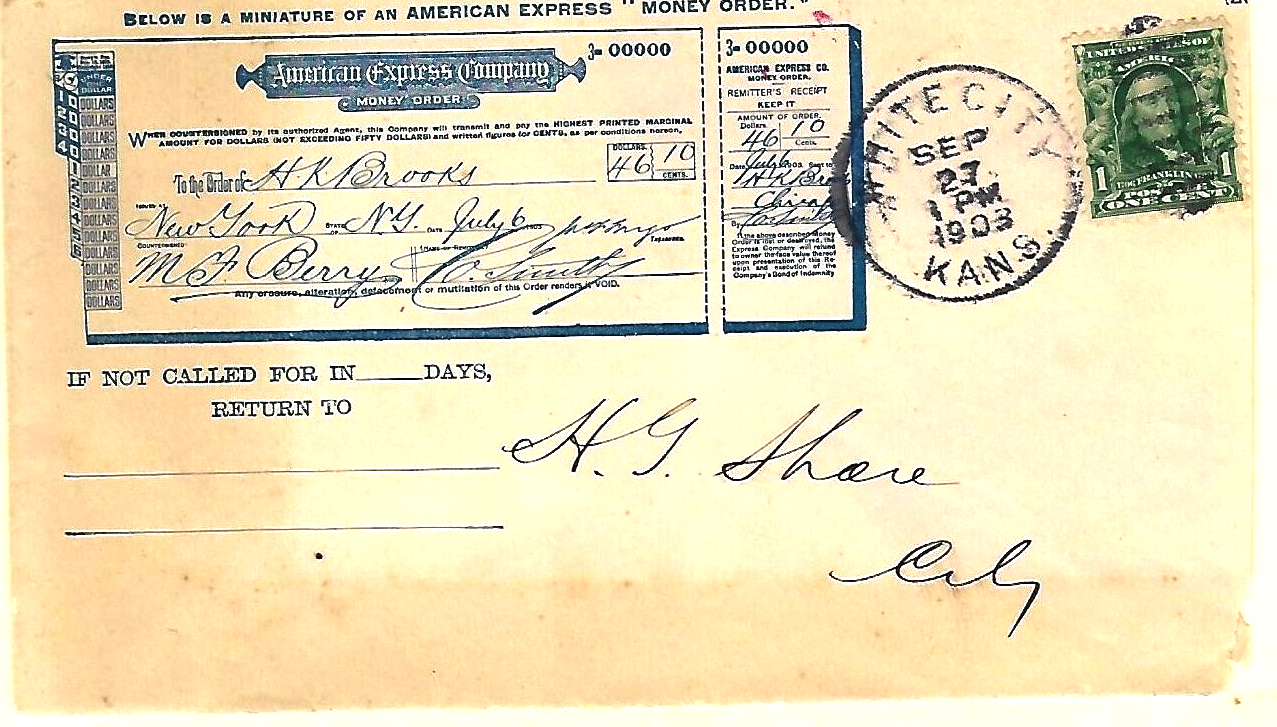 BELOW IS A MINIATURE OF AN AMERICAN EXPRESS "MONEY ORDER."
3- 00000
American Express Company
MONEY ORDER
WHEN COUNTERSIGNED by its authorized Agent, this Company will transmit and pay the HIGHEST PRINTED MARGINAL
AMOUNT FOR DOLLARS (NOT EXCEEDING FIFTY DOLLARS) and written figures for CENTS, as per conditions hereon,
DOLLARS.
46 10
CENTS.
To the Order of H K Brooks
ISSUED AT
New York STATE OF N.Y. DATE July 6
TREASURER.
COUNTERSIGNED
M F Berry C. Smith
Any erasure, alteration, defacement or mutilation of this Order renders it VOID.
UNDER
DOLLAR
DOLLARS
DOLLARS
DOLLARS
DOLLARS
DOLLAR
DOLLARS
DOLLARS
DOLLARS
DOLLARS
DOLLARS
DOLLARS
DOLLARS
DOLLARS
3- 00000
AMERICAN EXPRESS CO.
MONEY ORDER.
REMITTER'S RECEIPT
KEEP IT
AMOUNT OF ORDER
Dollars 10
46 Cents.
Date July 6 1903. Sent to
H K
By
If the above described Money
Order is lost or destroyed, the
Express Company will refund
to owner the face value thereof
upon presentation of this Re-
ceipt and execution of the
Company's Bond of Indemnity
WHITE CITY
SEP
27
1 PM
1903
KANS.
UNITED STATES OF
AMERICA
1 FRANKLIN 1
POSTAGE
ONE CENT
IF NOT CALLED FOR IN DAYS,
RETURN TO
H. G. Shore
City